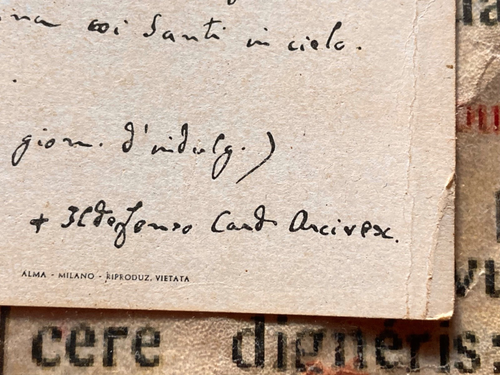 coi Santi in cielo.
giorn. d'indulg.)
+ Ildefonso Card. Arcivex.
ALMA - MILANO - RIPRODUZ. VIETATA
cere dignéris: